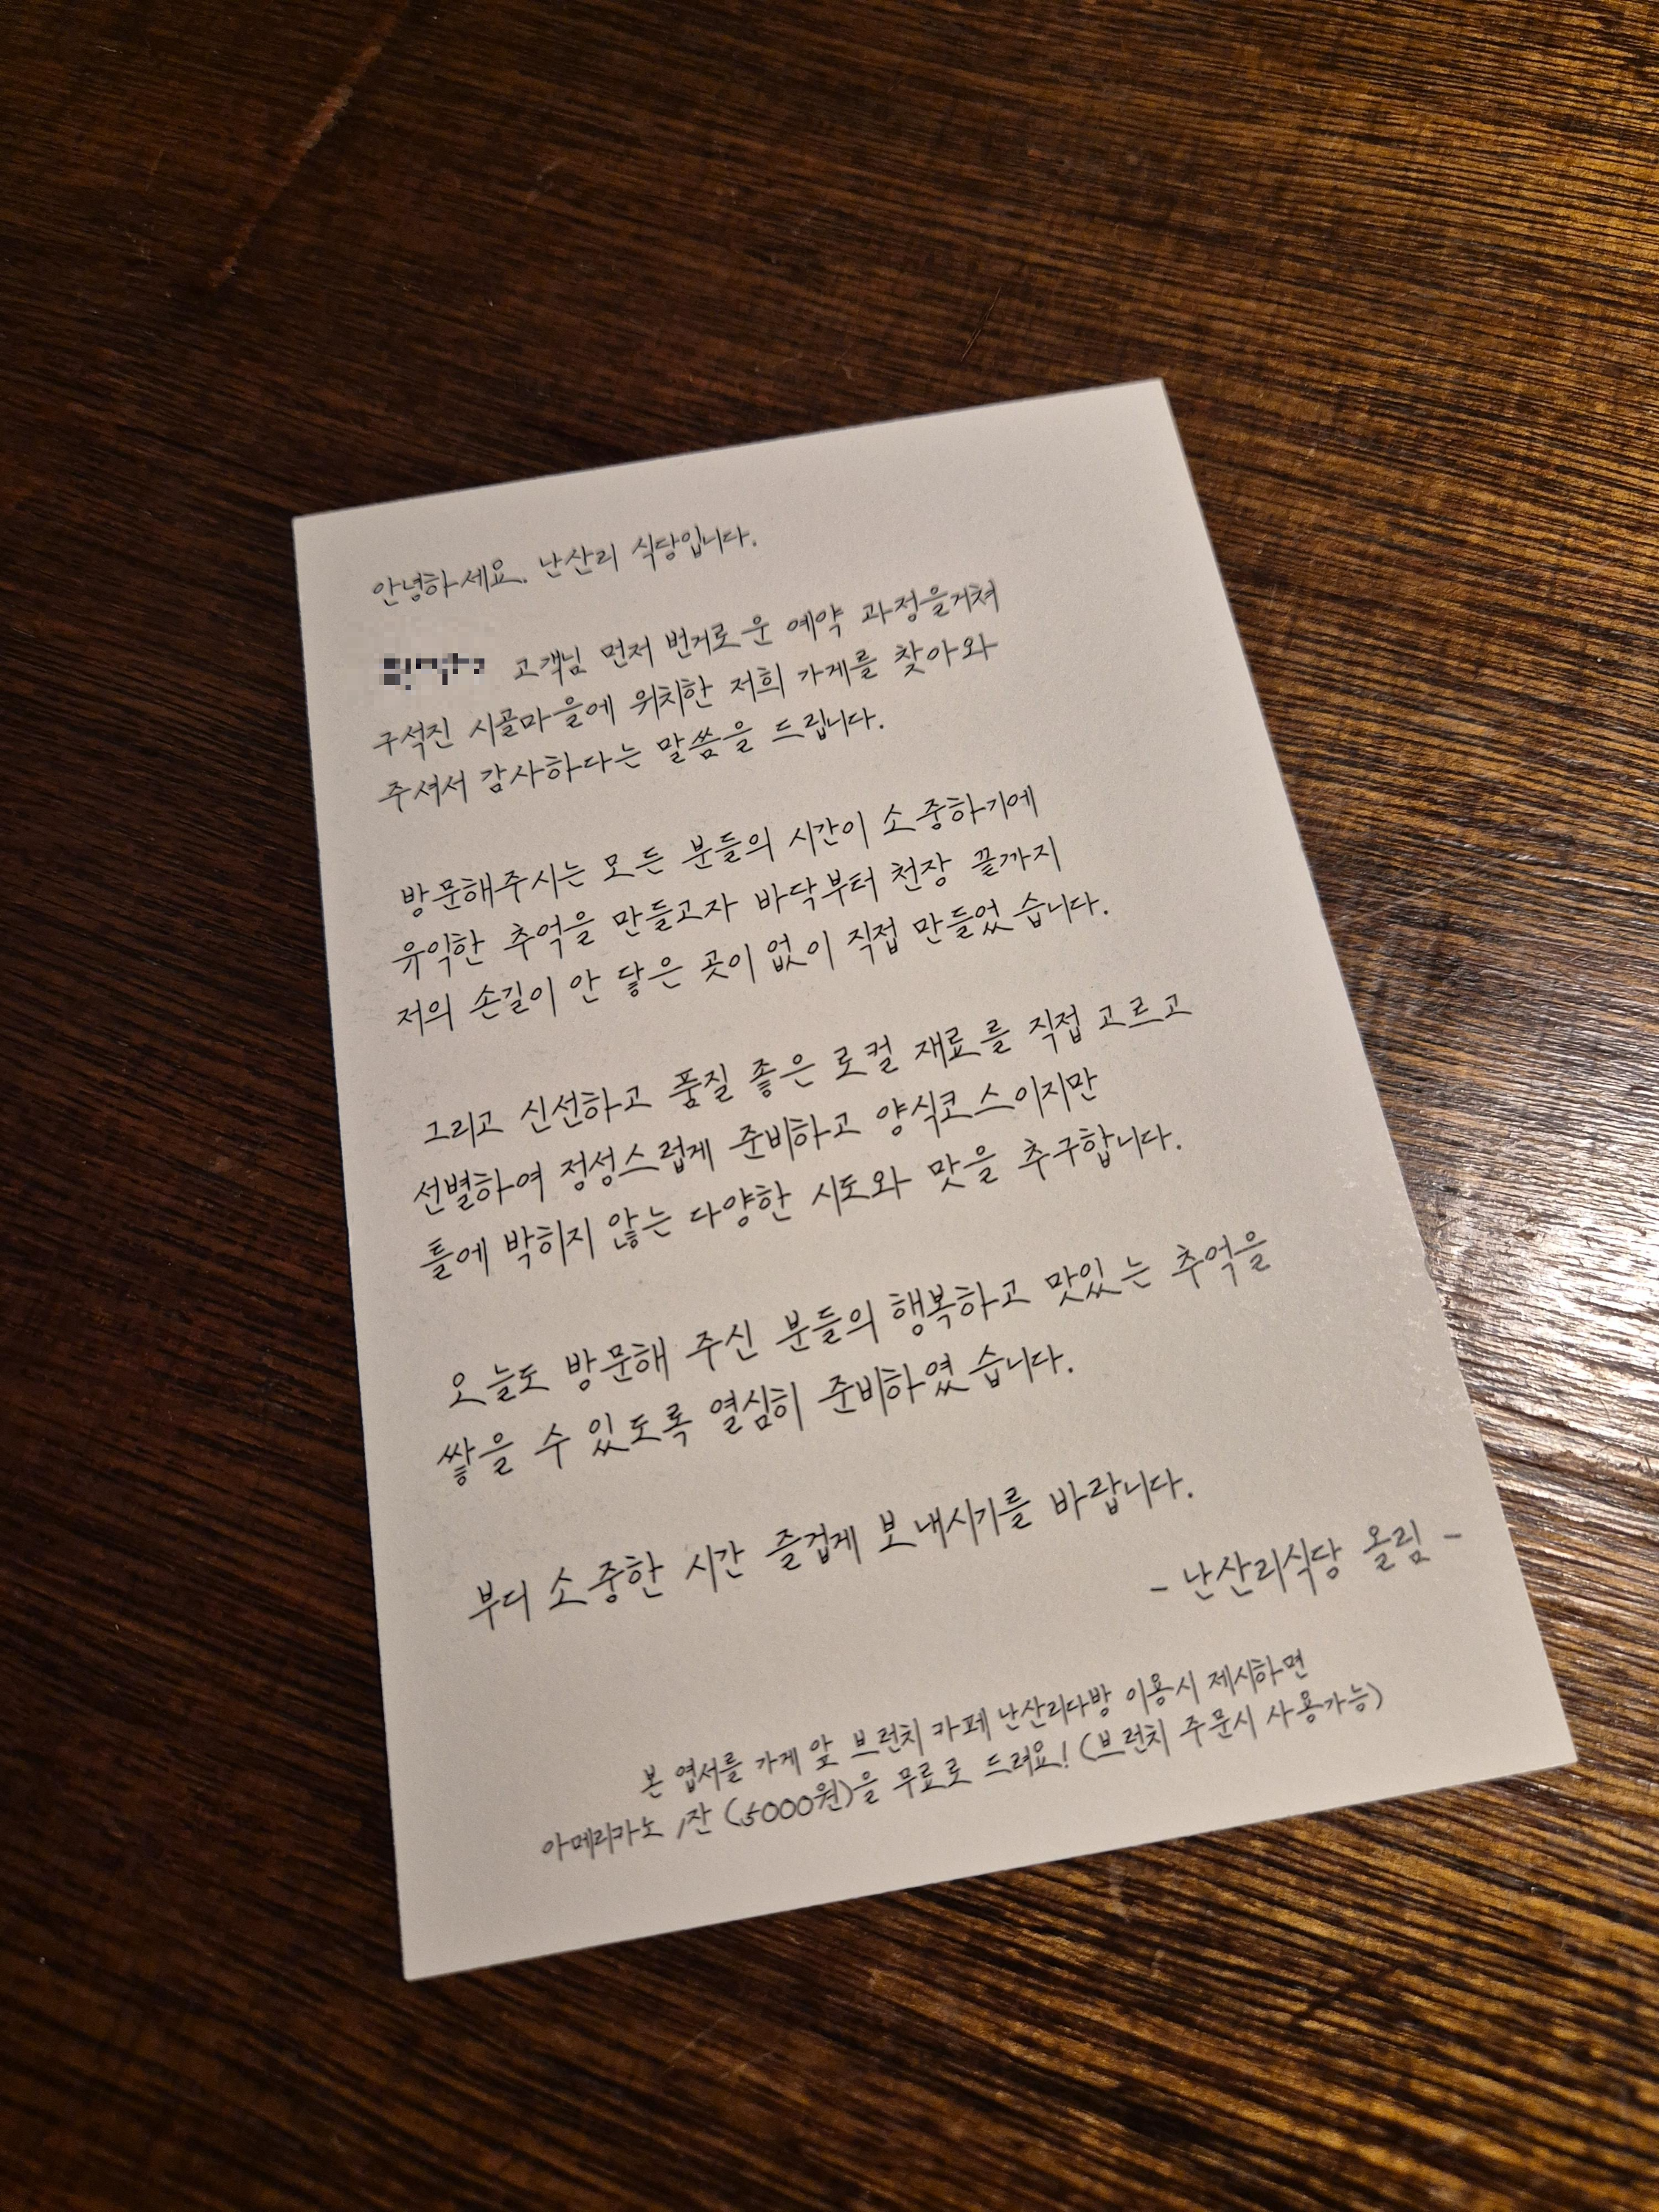 안녕하세요. 난산리 식당입니다.
고객님 먼저 번거로운 예약 과정을거쳐
구석진 시골마을에 위치한 저희 가게를 찾아와
주셔서 감사하다는 말씀을 드립니다.
방문해주시는 모든 분들의 시간이 소중하기에
유익한 추억을 만들고자 바닥부터 천장 끝까지
저의 손길이 안 닿은 곳이 없이 직접 만들었습니다.
그리고 신선하고 품질 좋은 로컬 재료를 직접 고르고
선별하여 정성스럽게 준비하고 양식코스이지만
틀에 박히지 않는 다양한 시도와 맛을 추구합니다.
오늘도 방문해 주신 분들의 행복하고 맛있는 추억을
쌓을 수 있도록 열심히 준비하였습니다.
부디 소중한 시간 즐겁게 보내시기를 바랍니다.
- 난산리식당 올림 -
본 엽서를 가게 앞 브런치 카페 난산리다방 이용시 제시하면
아메리카노 1잔 (5000원)을 무료로 드려요! (브런치 주문시 사용가능)